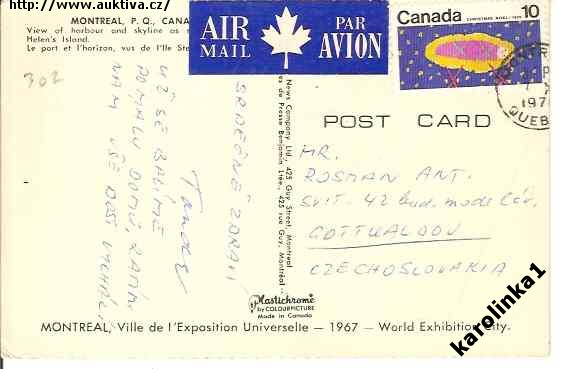 http://www.auktiva.cz/
MONTREAL, P. Q., CANA
View of harbour and skyline as
Helen's Island.
Le port et l'horizon, vus de l'Ile Ste
302
AIR MAIL
PAR AVION
Canada
CHRISTMAS NOËL 1970
10
197
QUEB
UŽ SE BALÍME
POMALU DOMŮ,
NÁM VŠE
SRDEČNĚ ZDRAVÍ
News Company Ltd., 425 Guy Street, Montreal
es de Presse Benjamin Ltée., 425 rue Guy, Montréal
POST CARD
MR.
ROSMAN ANT.
SVIT - 42 bud.
GOTTWALDOV
CZECHOSLOVAKIA
Plastichrome
by COLOURPICTURE
Made in Canada
MONTREAL, Ville de l'Exposition Universelle — 1967 — World Exhibition City.
karolinka1